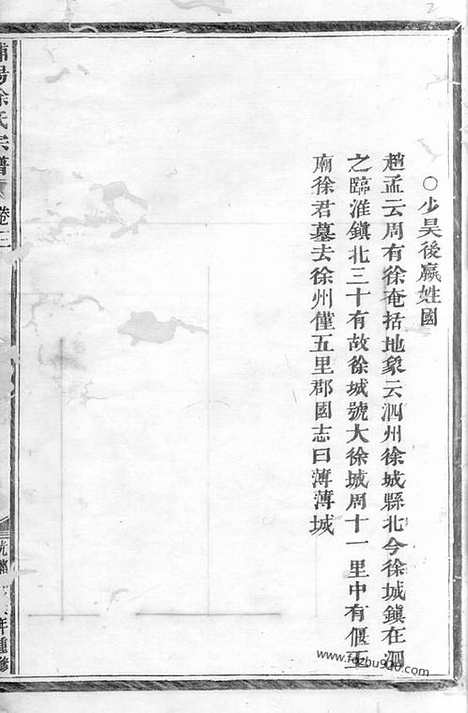 ○少昊後嬴姓國
趙孟云周有徐奄括地象云泗州徐城縣北今徐城鎮在泗
之臨淮鎮北三十有故徐城號大徐城周十一里中有偃王
廟徐君墓去徐州僅五里郡國志曰薄薄城
浦陽徐氏宗譜 卷二
年重修
www.fozbu940.com